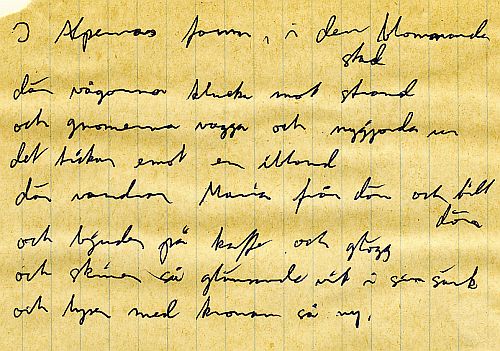 I Alpernas famn, i den blommande
stad
där vågorna klucka mot strand
och gnomerna vagga och nygjorda ur
det tickar emot en ibland
där vandrar Maria från dörr och till
dörr
och bjuder på kaffe och glögg
och skiner så glänsande vit i sin särk
och lyser med kronan så ny.